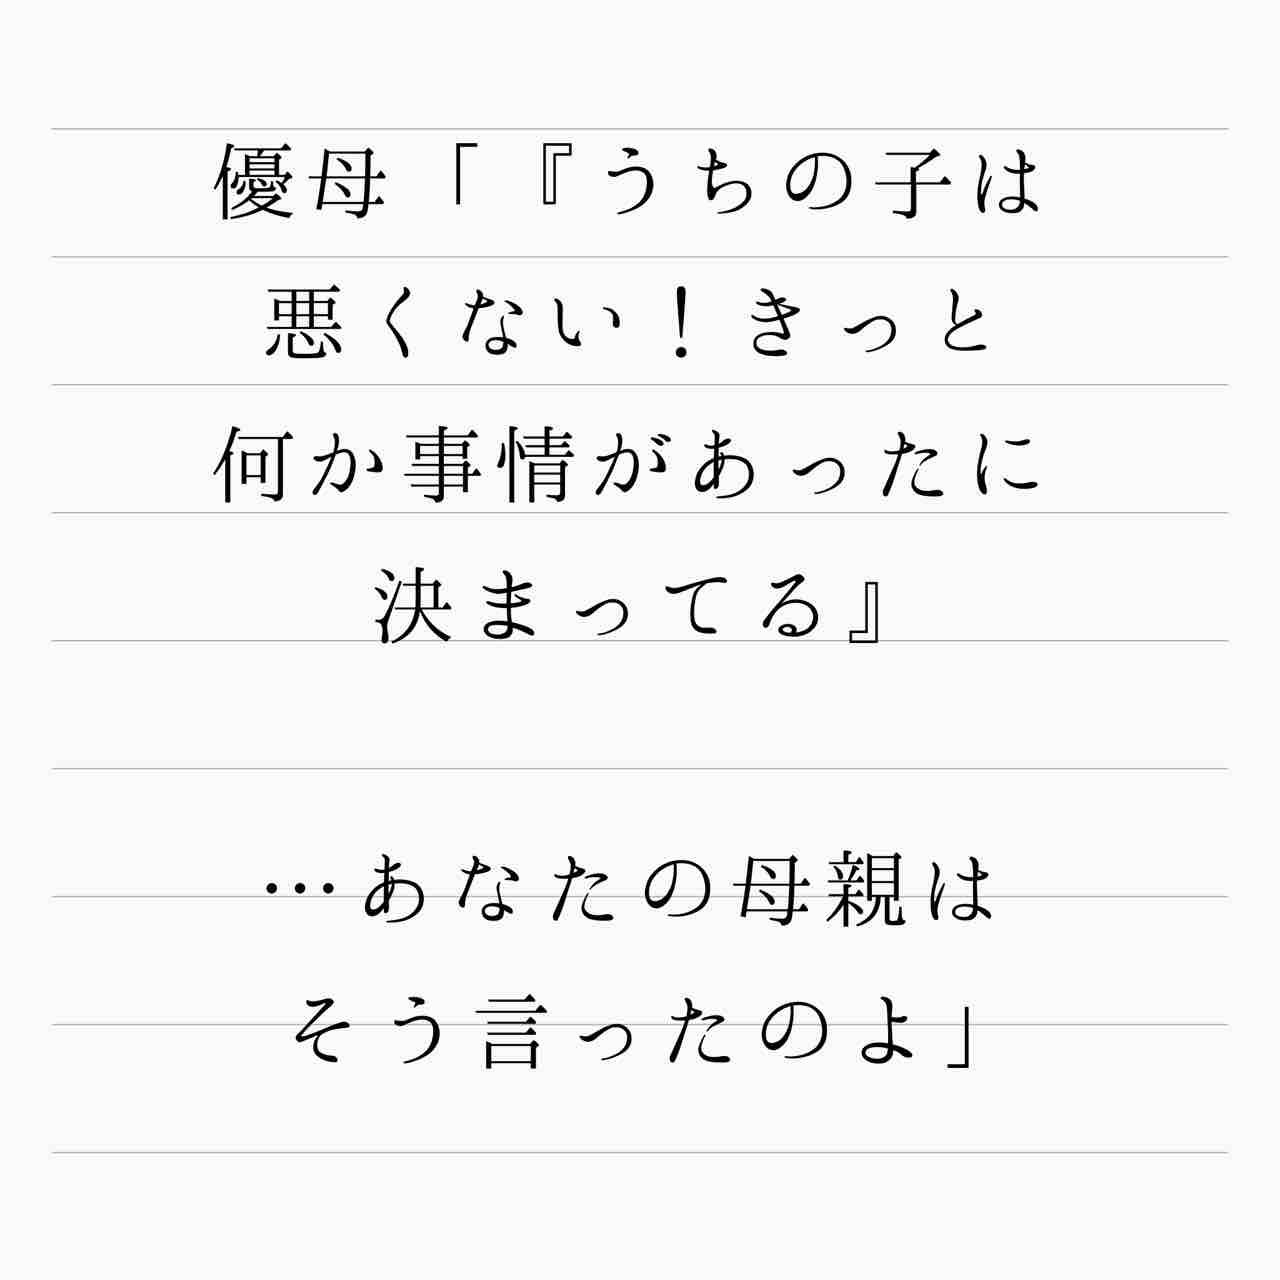 優母「『うちの子は
悪くない！きっと
何か事情があったに
決まってる』
…あなたの母親は
そう言ったのよ」